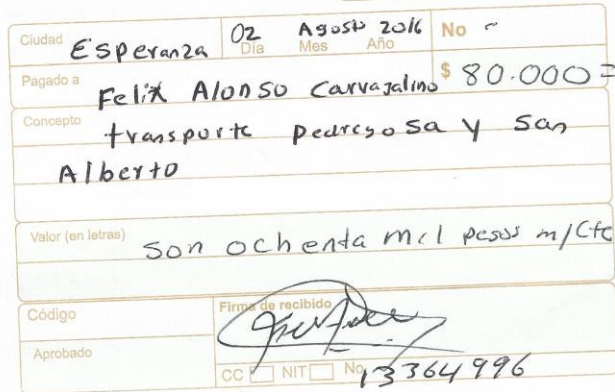 Ciudad Esperanza 02 Agosto 2016 No -
Día Mes Año
Pagado a Felix Alonso Carvajalino $ 80.000=
Concepto transporte pedregosa y San
Alberto
Valor (en letras) son ochenta mil pesos m/cte
Código Firma de recibido
Aprobado
CC NIT No 13364996